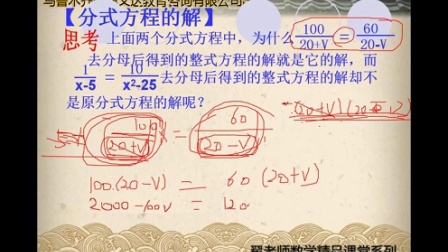 【分式方程的解】
思考 上面两个分式方程中，为什么 100/20+V = 60/20-V
去分母后得到的整式方程的解就是它的解，而
1/x-5 = 10/x²-25 去分母后得到的整式方程的解却不
是原分式方程的解呢？
100/20+V = 60/20-V
100·(20-V) = 60(20+V)
2000-100V = 120
翟老师数学精品课堂系列